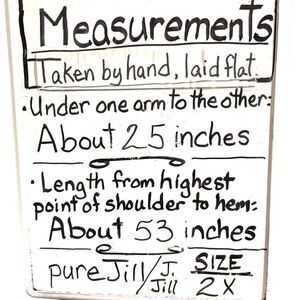 Measurements
Taken by hand, laid flat.
• Under one arm to the other:
About 25 inches
• Length from highest
point of shoulder to hem:
About 53 inches
pure Jill/J. Jill
SIZE
2X